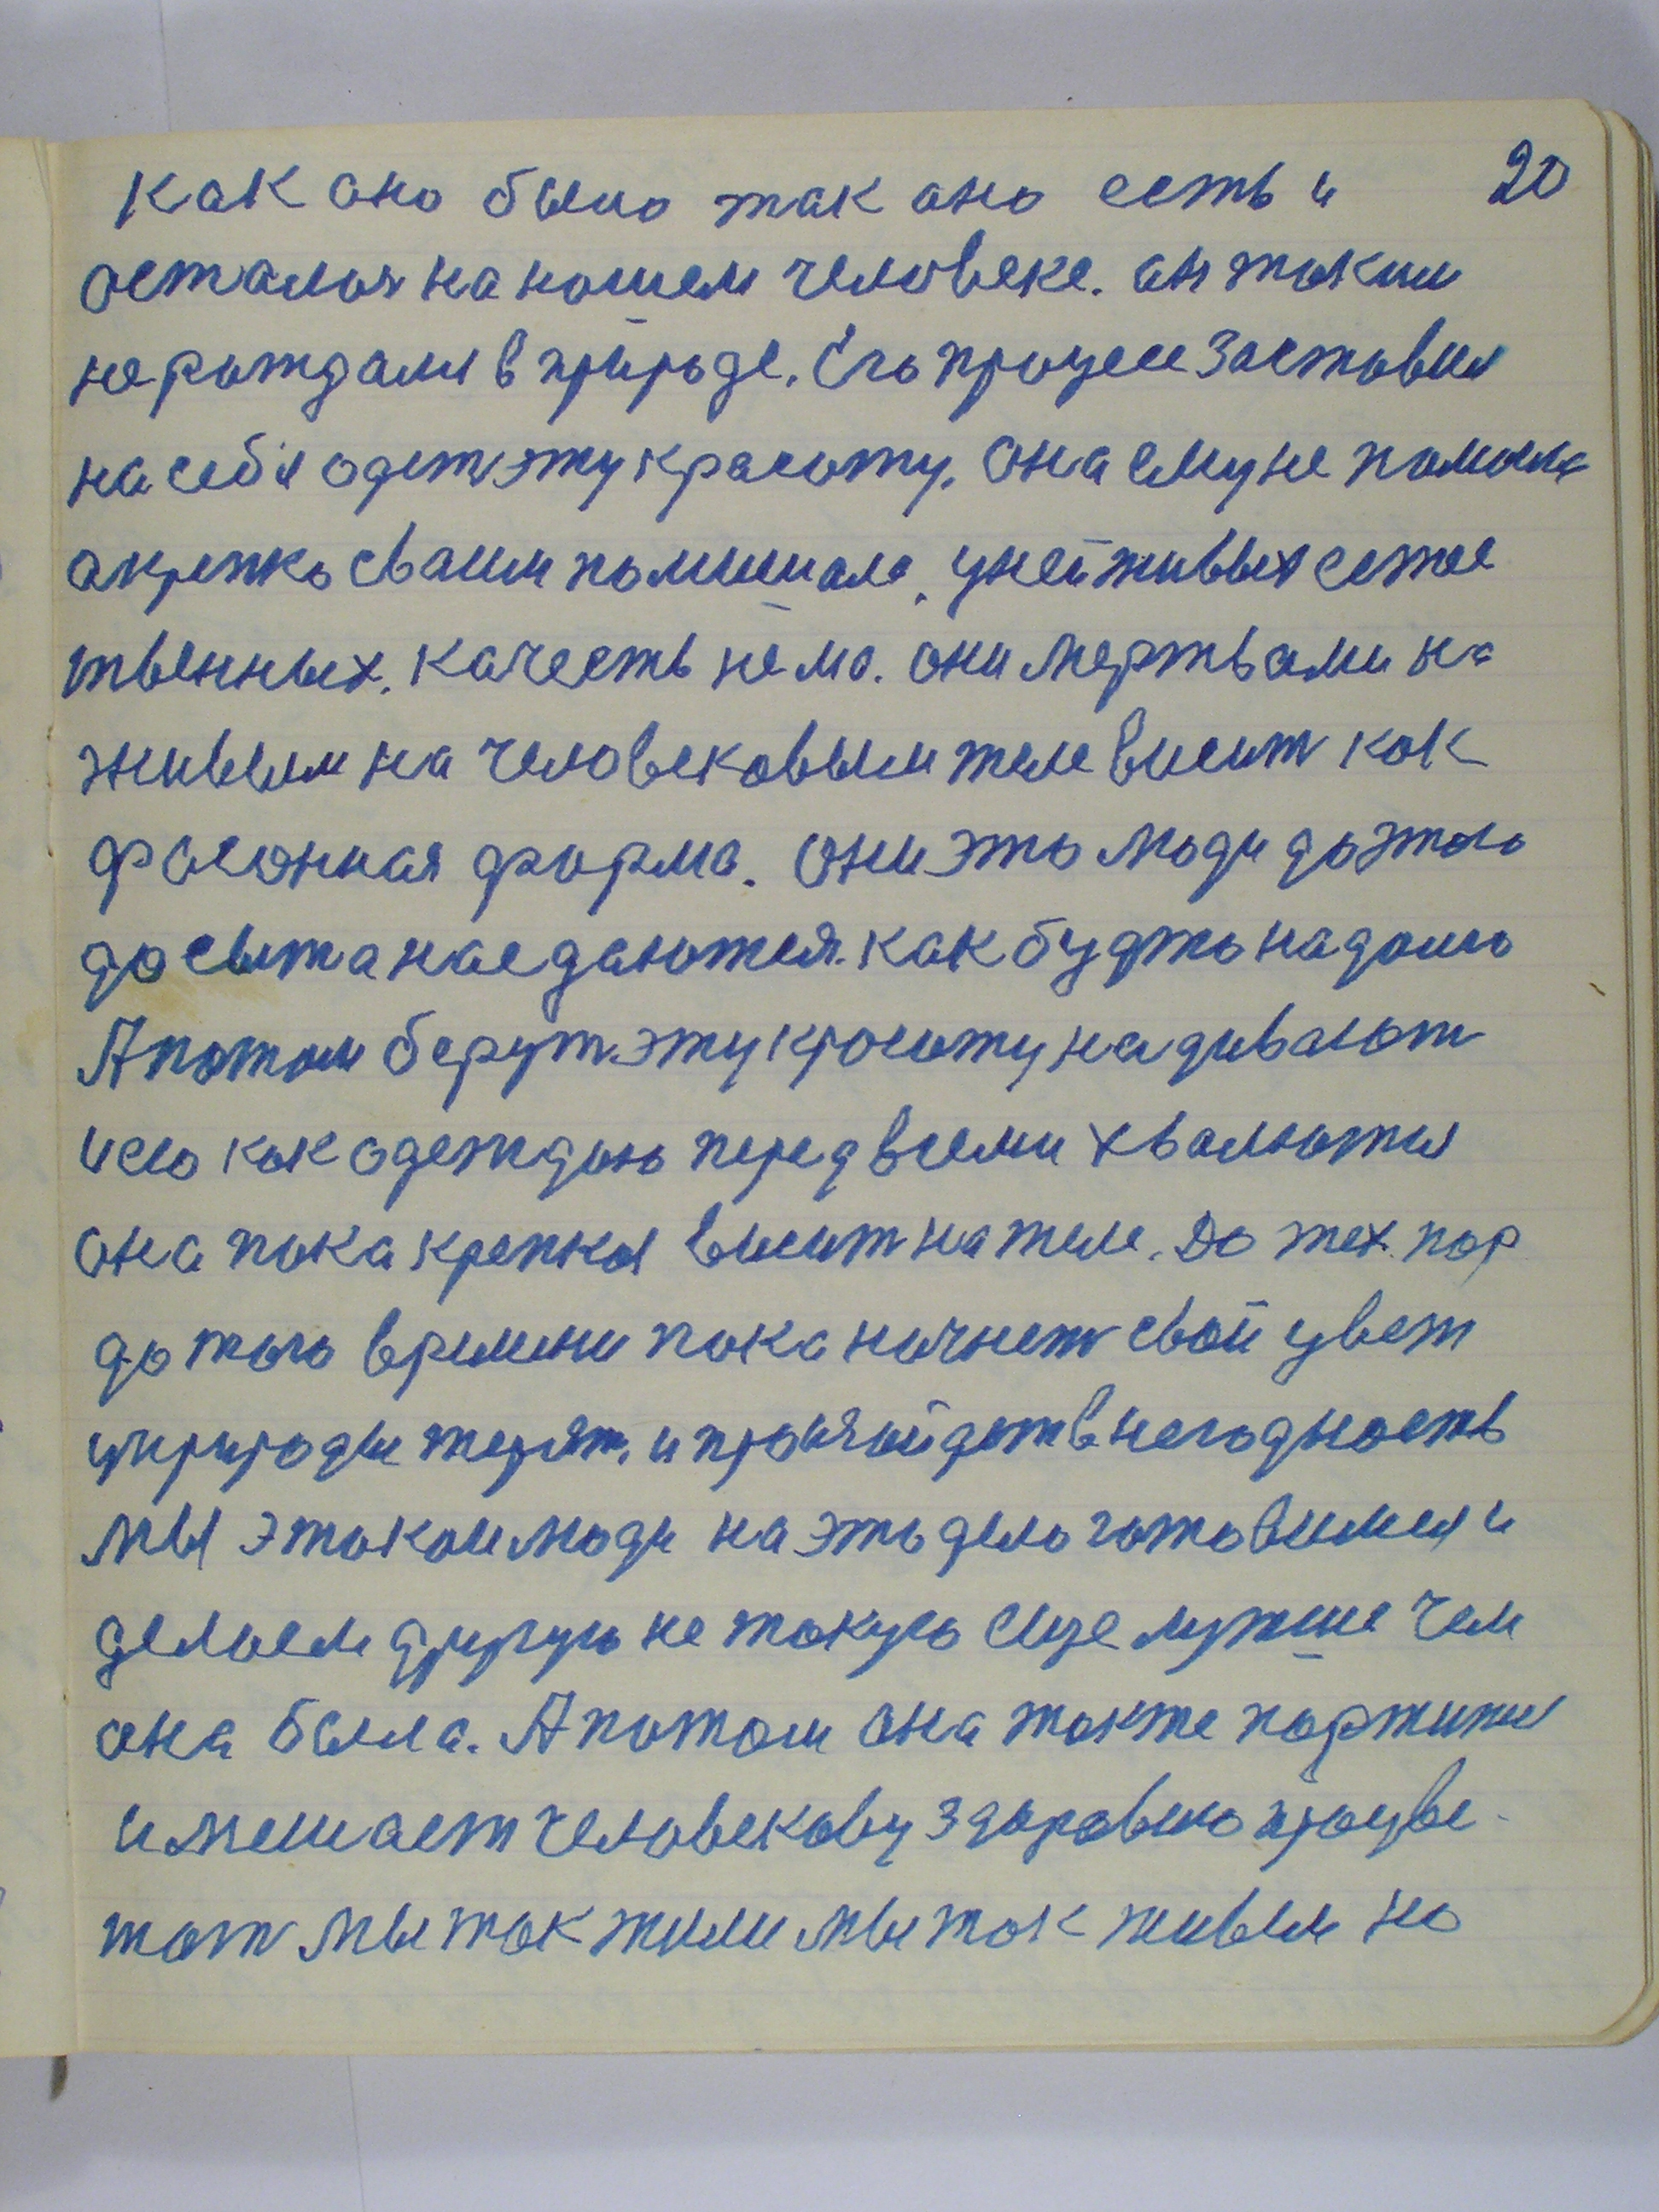 как оно было так оно есть и 20
осталоя на нашем человеке. он таким
не рождался в природе. Его процесс заставил
на себя одеть эту красоту. Она ему не помогла
а крепко сваим помишала. у ней живых естес
твенных. качеств не ма. они мертвами на
живым на человековым теле висит как
фасонная форма. Они это люди до этого
до сыта наедаются. как будто надолго
А потом берут эту красоту надивают
и ею как одеждою перед всеми хвалютия
она пока крепкая висит на теле. До тех пор
до того времени пока начнет свой цвет
у природи терят. и произайдет в негодность
мы этокои люди на это дело готовимся и
делаем другую не такую еще лутше чем
она была. А потом она также портится
и мешает человекову здоровию процве-
тат мы так жили мы так живем но